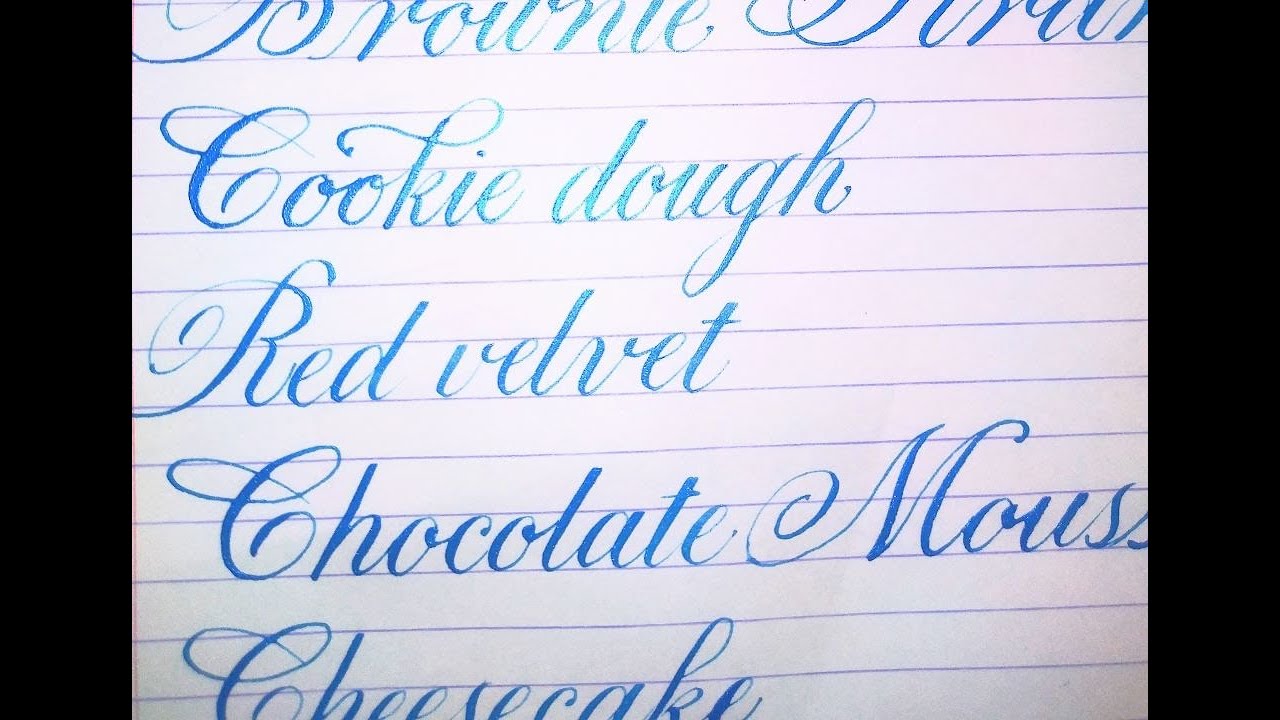 Brownie
Cookie dough
Red velvet
Chocolate Mouss
Cheesecake